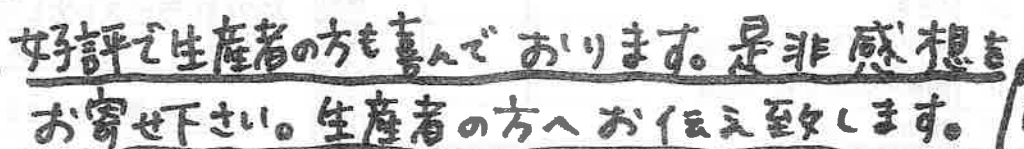 好評で生産者の方も喜んでおります。是非感想を
お寄せ下さい。生産者の方へお伝え致します。